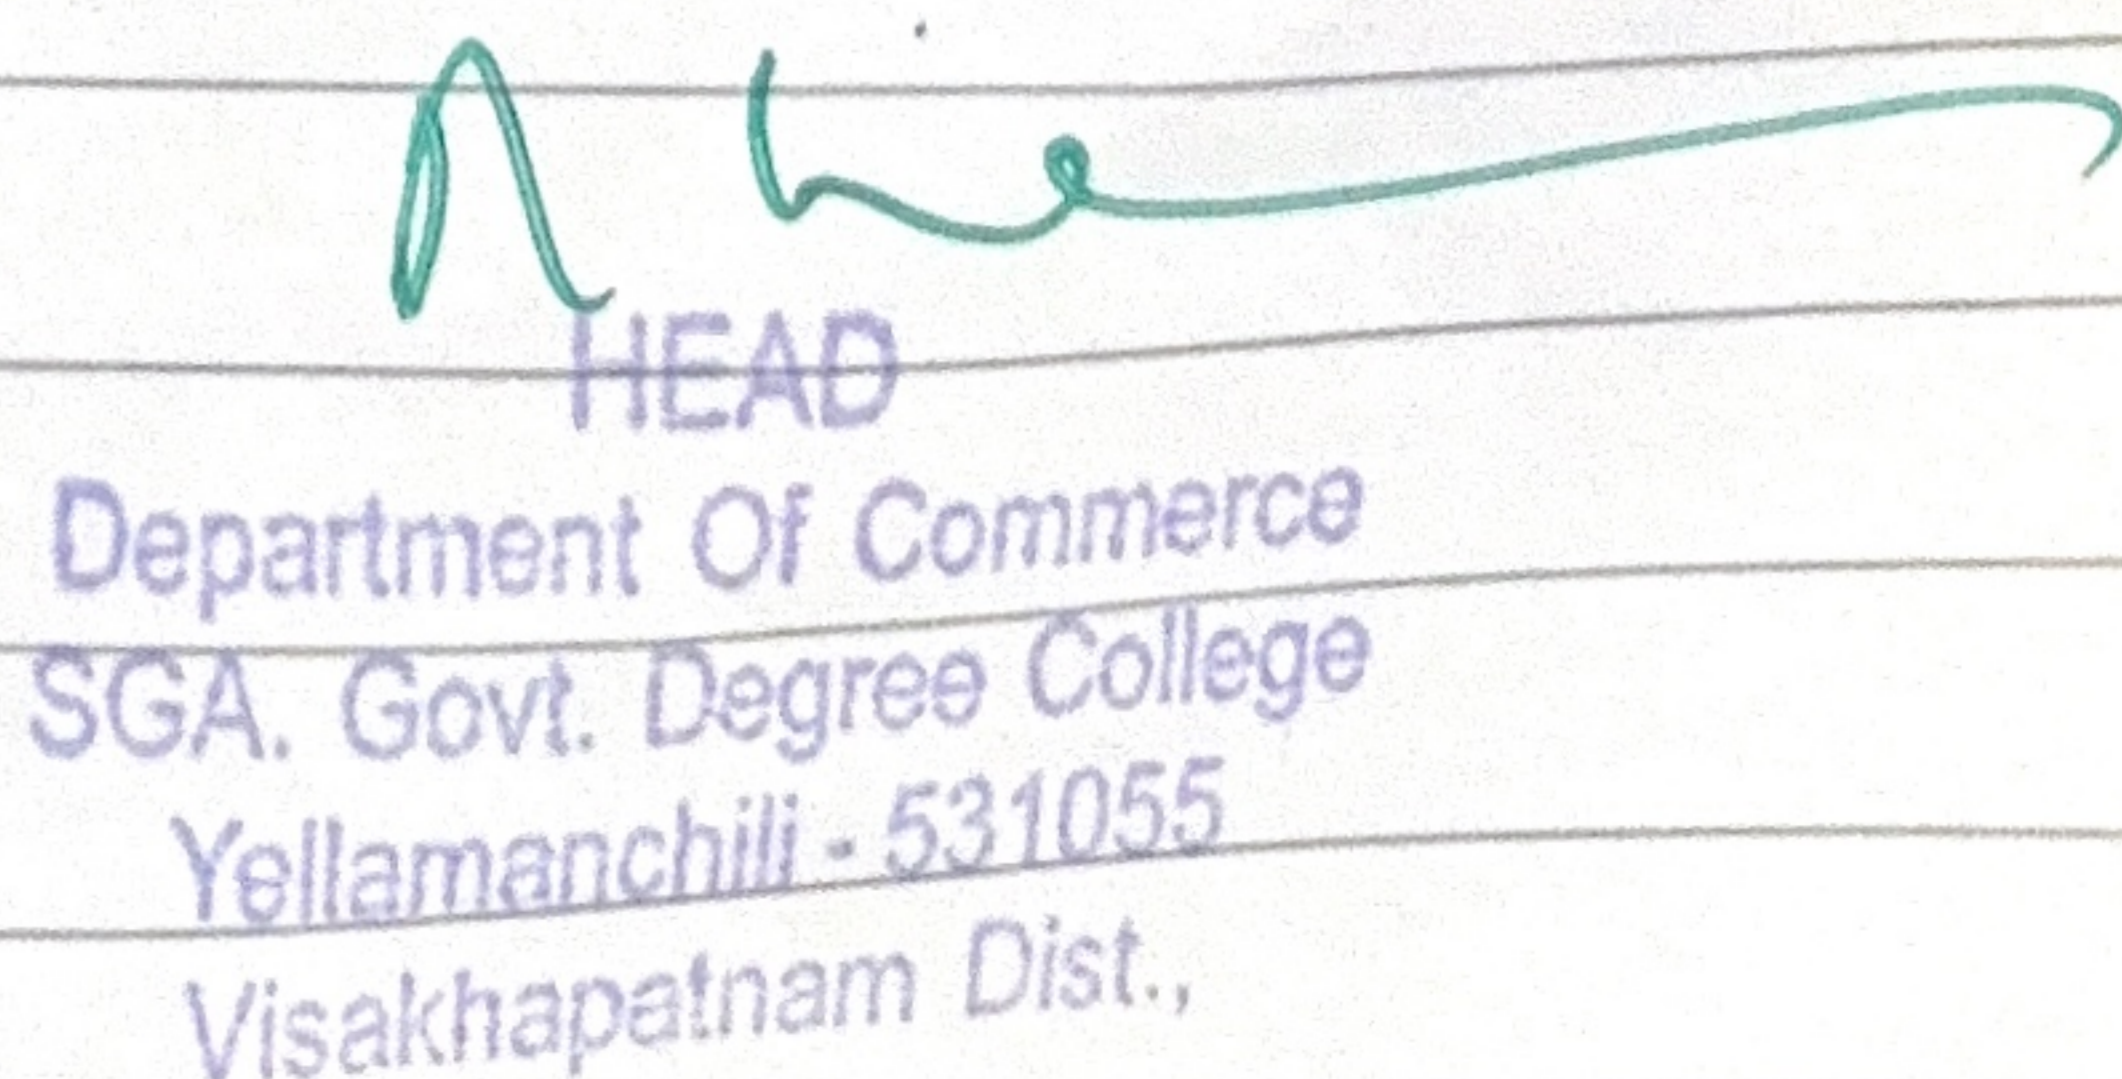 HEAD
Department Of Commerce
SGA. Govt. Degree College
Yellamanchili - 531055
Visakhapatnam Dist.,